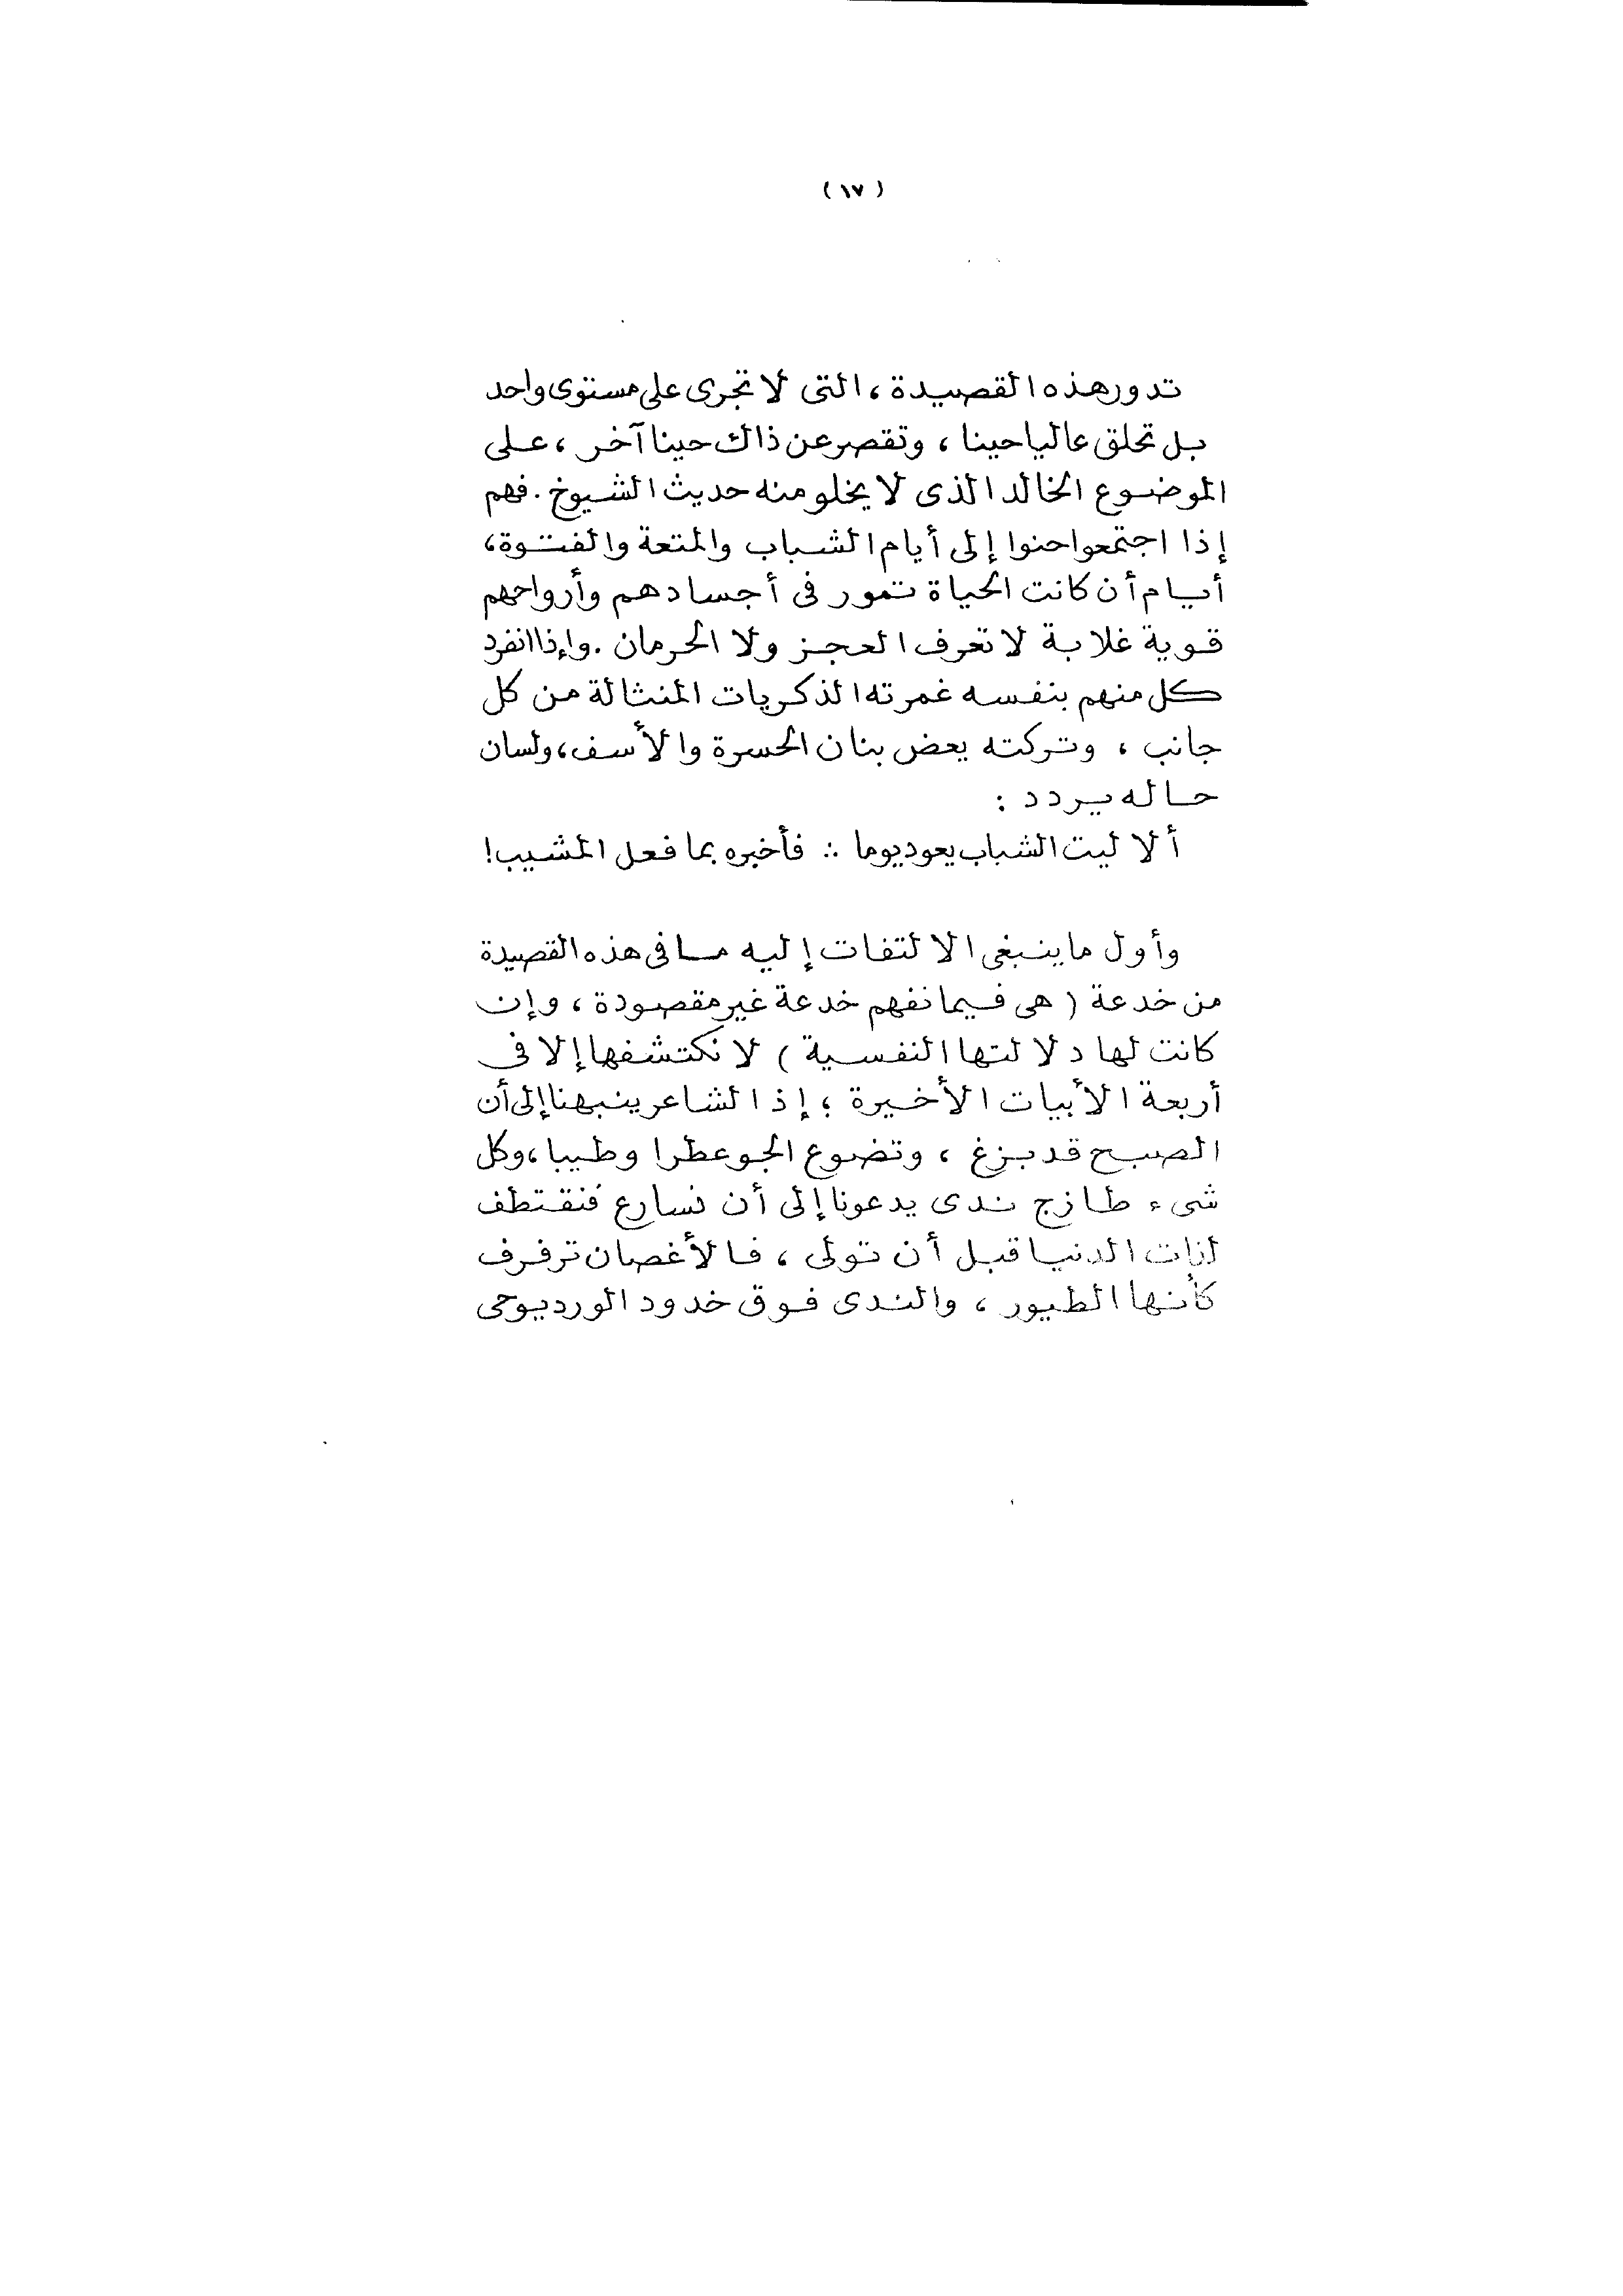 ( ١٧ )
تدور هذه القصيدة ، التى لا تجرى على مستوى واحد
بل تحلق عاليا حينا ، وتقصر عن ذاك حينا آخر ، على
الموضوع الخالد الذى لا يخلو منه حديث الشيوخ . فهم
إذا اجتمعوا حنوا إلى أيام الشباب والمتعة والفتوة ،
أيام أن كانت الحياة تمور فى أجسادهم وأرواحهم
قوية غلابة لا تعرف العجز ولا الحرمان . وإذا انفرد
كل منهم بنفسه غمرته الذكريات المنثالة من كل
جانب ، وتركته يعض بنان الحسرة والأسف ، ولسان
حاله يردد :
ألا ليت الشباب يعود يوما ∴ فأخبره بما فعل المشيب !
وأول ما ينبغى الالتفات إليه ما فى هذه القصيدة
من خدعة ( هى فيما نفهم خدعة غير مقصودة ، وإن
كانت لها دلالتها النفسية ) لا نكتشفها إلا فى
أربعة الأبيات الأخيرة ؛ إذ الشاعر ينبهنا إلى أن
الصبح قد بزغ ، وتضوع الجو عطرا وطيبا ، وكل
شىء طازج ندى يدعونا إلى أن نسارع فنقتطف
لذات الدنيا قبل أن تولى ، فالأغصان ترفرف
كأنها الطيور ، والندى فوق خدود الورد يوحى